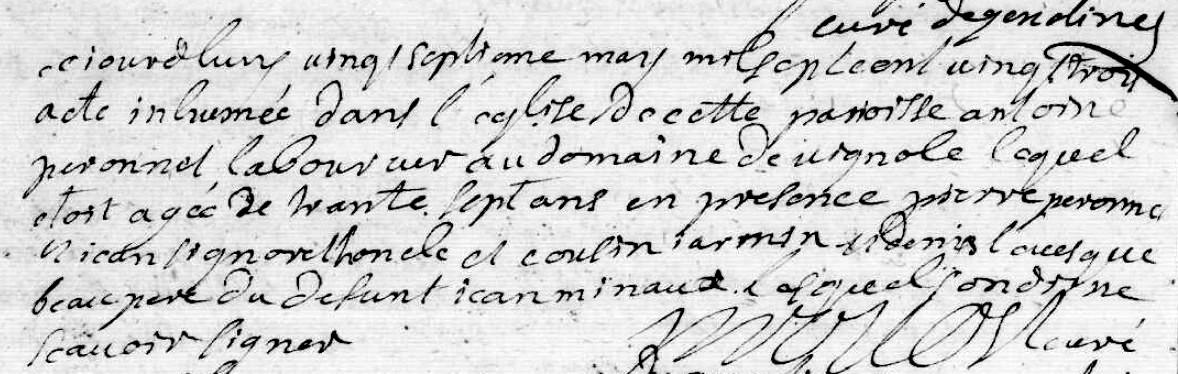 curé degendines
cejourdhuy vingt septième may mil sept cent vingt trois
a ete inhumée dans l'église de cette paroisse antoine
peronnet laboureur au domaine de vignole lequel
etoit agéé de trante sept ans en presence pierre peronnet
et jean signoret honcle et cousin jarmin et denis levesque
beau pere du defunt jean minaud lesquels ont dit ne
scavoir signer
curé